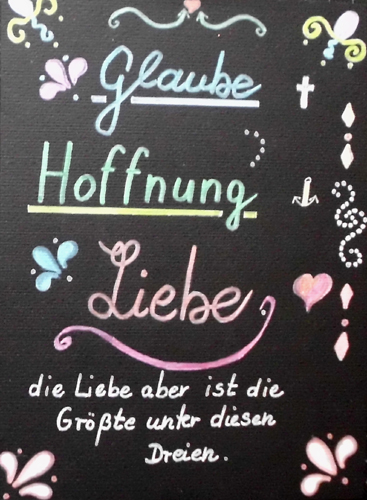 Glaube
Hoffnung
Liebe
die Liebe aber ist die
Größte unter diesen
Dreien.